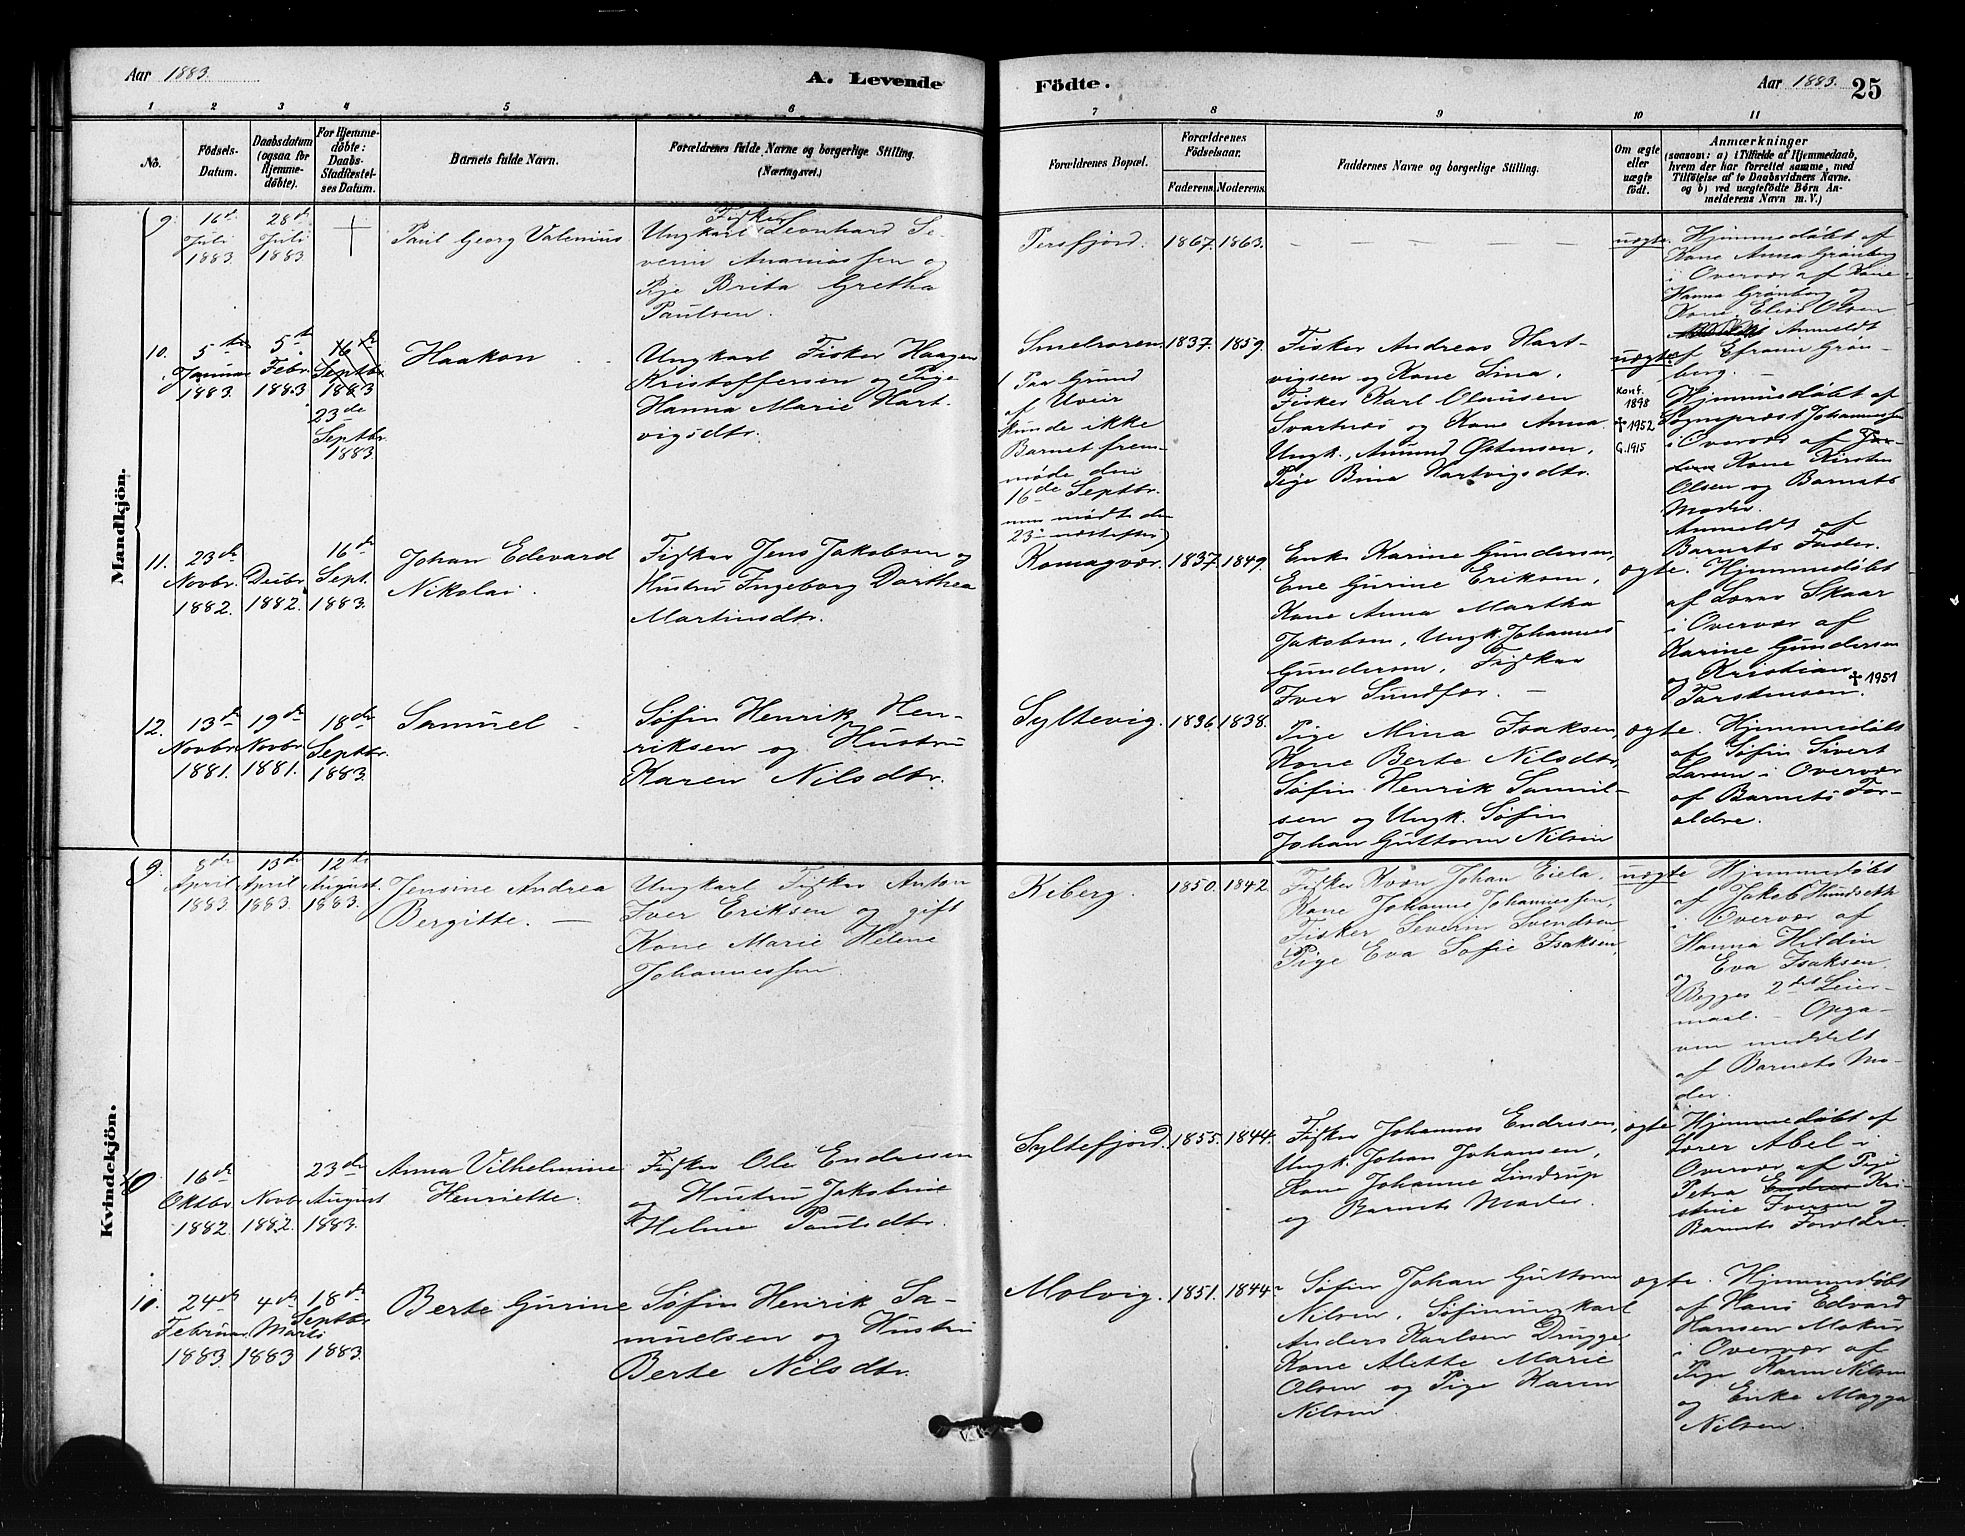 Aar 1883.
A. Levende
Födte.
Aar 1883.
25
1 2 3 4 5 6 7 8 9 10 11
No.
Födsels-
Datum.
Daabsdatum
(ogsaa for
Hjemme-
döbte).
For Hjemme-
döbte:
Daabs-
Stadfæstel-
ses Datum.
Barnets fulde Navn.
Forældrenes fulde Navne og borgerlige Stilling.
(Næringsvei.)
Forældrenes Bopæl.
Forældrenes
Födselsaar.
Faderens. Moderens.
Faddernes Navne og borgerlige Stilling.
Om ægte
eller
uægte
födt.
Anmærkninger
(saasom: a) i Tilfælde af Hjemmedaab,
hvem der har forrettet samme, med
Tilföielse af to Daabsvidners Navne.
og b) ved uægtefödte Börn An-
melderens Navn m. V.)
Mandkjön.
9.
16de
Juli
1883.
28de
Juli
1883
Paul Georg Valenius
Fisker
Ungkarl Leonhard Se-
verin Ananiassen og
Pige Brita Gretha
Paulsen.
Persfjord.
1867.
1863.
uægte.
Hjemmedøbt af
Kone Anna Grønberg
i Overvær af Kone
Hanna Grønberg og
Kone Elise Olsen
Anmeldt
af Efraim Grøn-
berg.
10.
5te
Januar
1883.
5te
Febr.
1883
16de
Septbr.
1883
23de
Septbr.
1883.
Haakon
Ungkarl Fisker Haagen
Kristoffersen og Pige
Hanna Marie Hart-
vigsdtr.
Smelroren.
Paa Grund
af Uveir
kunde ikke
Barnet frem-
møde den
16de Septbr.
men mødte den
23de næstefter)
1837.
1859.
Fisker Andreas Hart-
vigsen og Kone Lina,
Fisker Karl Clausen
Svartnes og Kone Anna
Ungk. Amund Østensen,
Pige Bina Hartvigsdtr.
uægte.
Konf.
1898
✝1952
G. 1915
Hjemmedøbt af
Sognepræst Johannessen
i Overvær af
Kone Kirsten
Olsen og Barnets
Moder.
Anmeldt af
Barnets Fader.
11.
23de
Novbr.
1882
Decbr.
1882.
16de
Sept.
1883.
Johan Edevard
Nikolai.
Fisker Jens Jakobsen og
Hustru Ingeborg Dorthea
Martinsdtr.
Komagvær.
1837.
1849.
Enke Karine Gundersen,
Enke Gurine Eriksen,
Kone Anna Martha
Jakobsen, Ungk. Johannes
Gundersen, Fisker
Iver Sundfær.
ægte.
Hjemmedøbt
af Lærer Skaar
i Overvær af
Karine Gundersen
og Kristian
Torstensen.
✝1951
12.
13de
Novbr.
1881.
19de
Novbr.
1881.
18de
Septbr.
1883.
Samuel
Søfin Henrik Hen-
riksen og Hustru
Karen Nilsdtr.
Syltevig.
1836.
1838.
Pige Mina Isaksen,
Kone Berte Nilsdtr,
Søfin Henrik Samuel-
sen og Ungk. Søfin
Johan Guttorm Nilsen
ægte.
Hjemmedøbt
af Søfin Sivert
Larsen i Overvær
af Barnets For-
ældre.
Kvindekjön.
9.
8de
April
1883.
13de
April
1883.
12te
August.
1883.
Jensine Andrea
Bergitte.
Ungkarl Fisker Anton
Iver Eriksen og gift
Kone Marie Helene
Johannessen.
Kiberg.
1850.
1842
Fisker Kvæn Johan Eiela,
Kone Johanne Johannessen,
Fisker Severin Svendsen,
Pige Eva Sofie Isaksen.
uægte
Hjemmedøbt
af Jakob
i Overvær af
Hanna Hildin
og Eva Isaksen.
Begges 2det Leier-
maal. – Opga-
ven meddelt
af Barnets Mo-
der.
10
16de
Oktbr.
1882.
Novbr.
1882.
23de
August
1883.
Anna Vilhelmine
Henriette.
Fisker Ole Endresen
og Hustru Jakobine
Helene Paulsdtr.
Syltefjord.
1855.
1844.
Fisker Johannes Endresen,
Ungk. Johan Johansen,
Kone Johanne Lindrup
og Barnets Moder.
ægte
Hjemmedøbt af
Lærer Abel i
Overvær af Pige
Petra Kri-
stine Iversen og
Barnets Forældre.
10.
24de
Februar
1883.
4de
Marts
1883
18de
Septbr.
1883.
Berte Gurine
Søfin Henrik Sa-
muelsen og Hustru
Berte Nilsdtr.
Molvig.
1851.
1844
Søfin Johan Guttorm
Nilsen, Søfinungkarl
Anders Karlsen Drugge,
Kone Alette Marie
Olsen og Pige Karen
Nilsen.
ægte.
Hjemmedøbt
af Hans Edvard
Hansen Makur
i Overvær af
Pige Karen Nilsen
og Enke Magga
Nilsen.